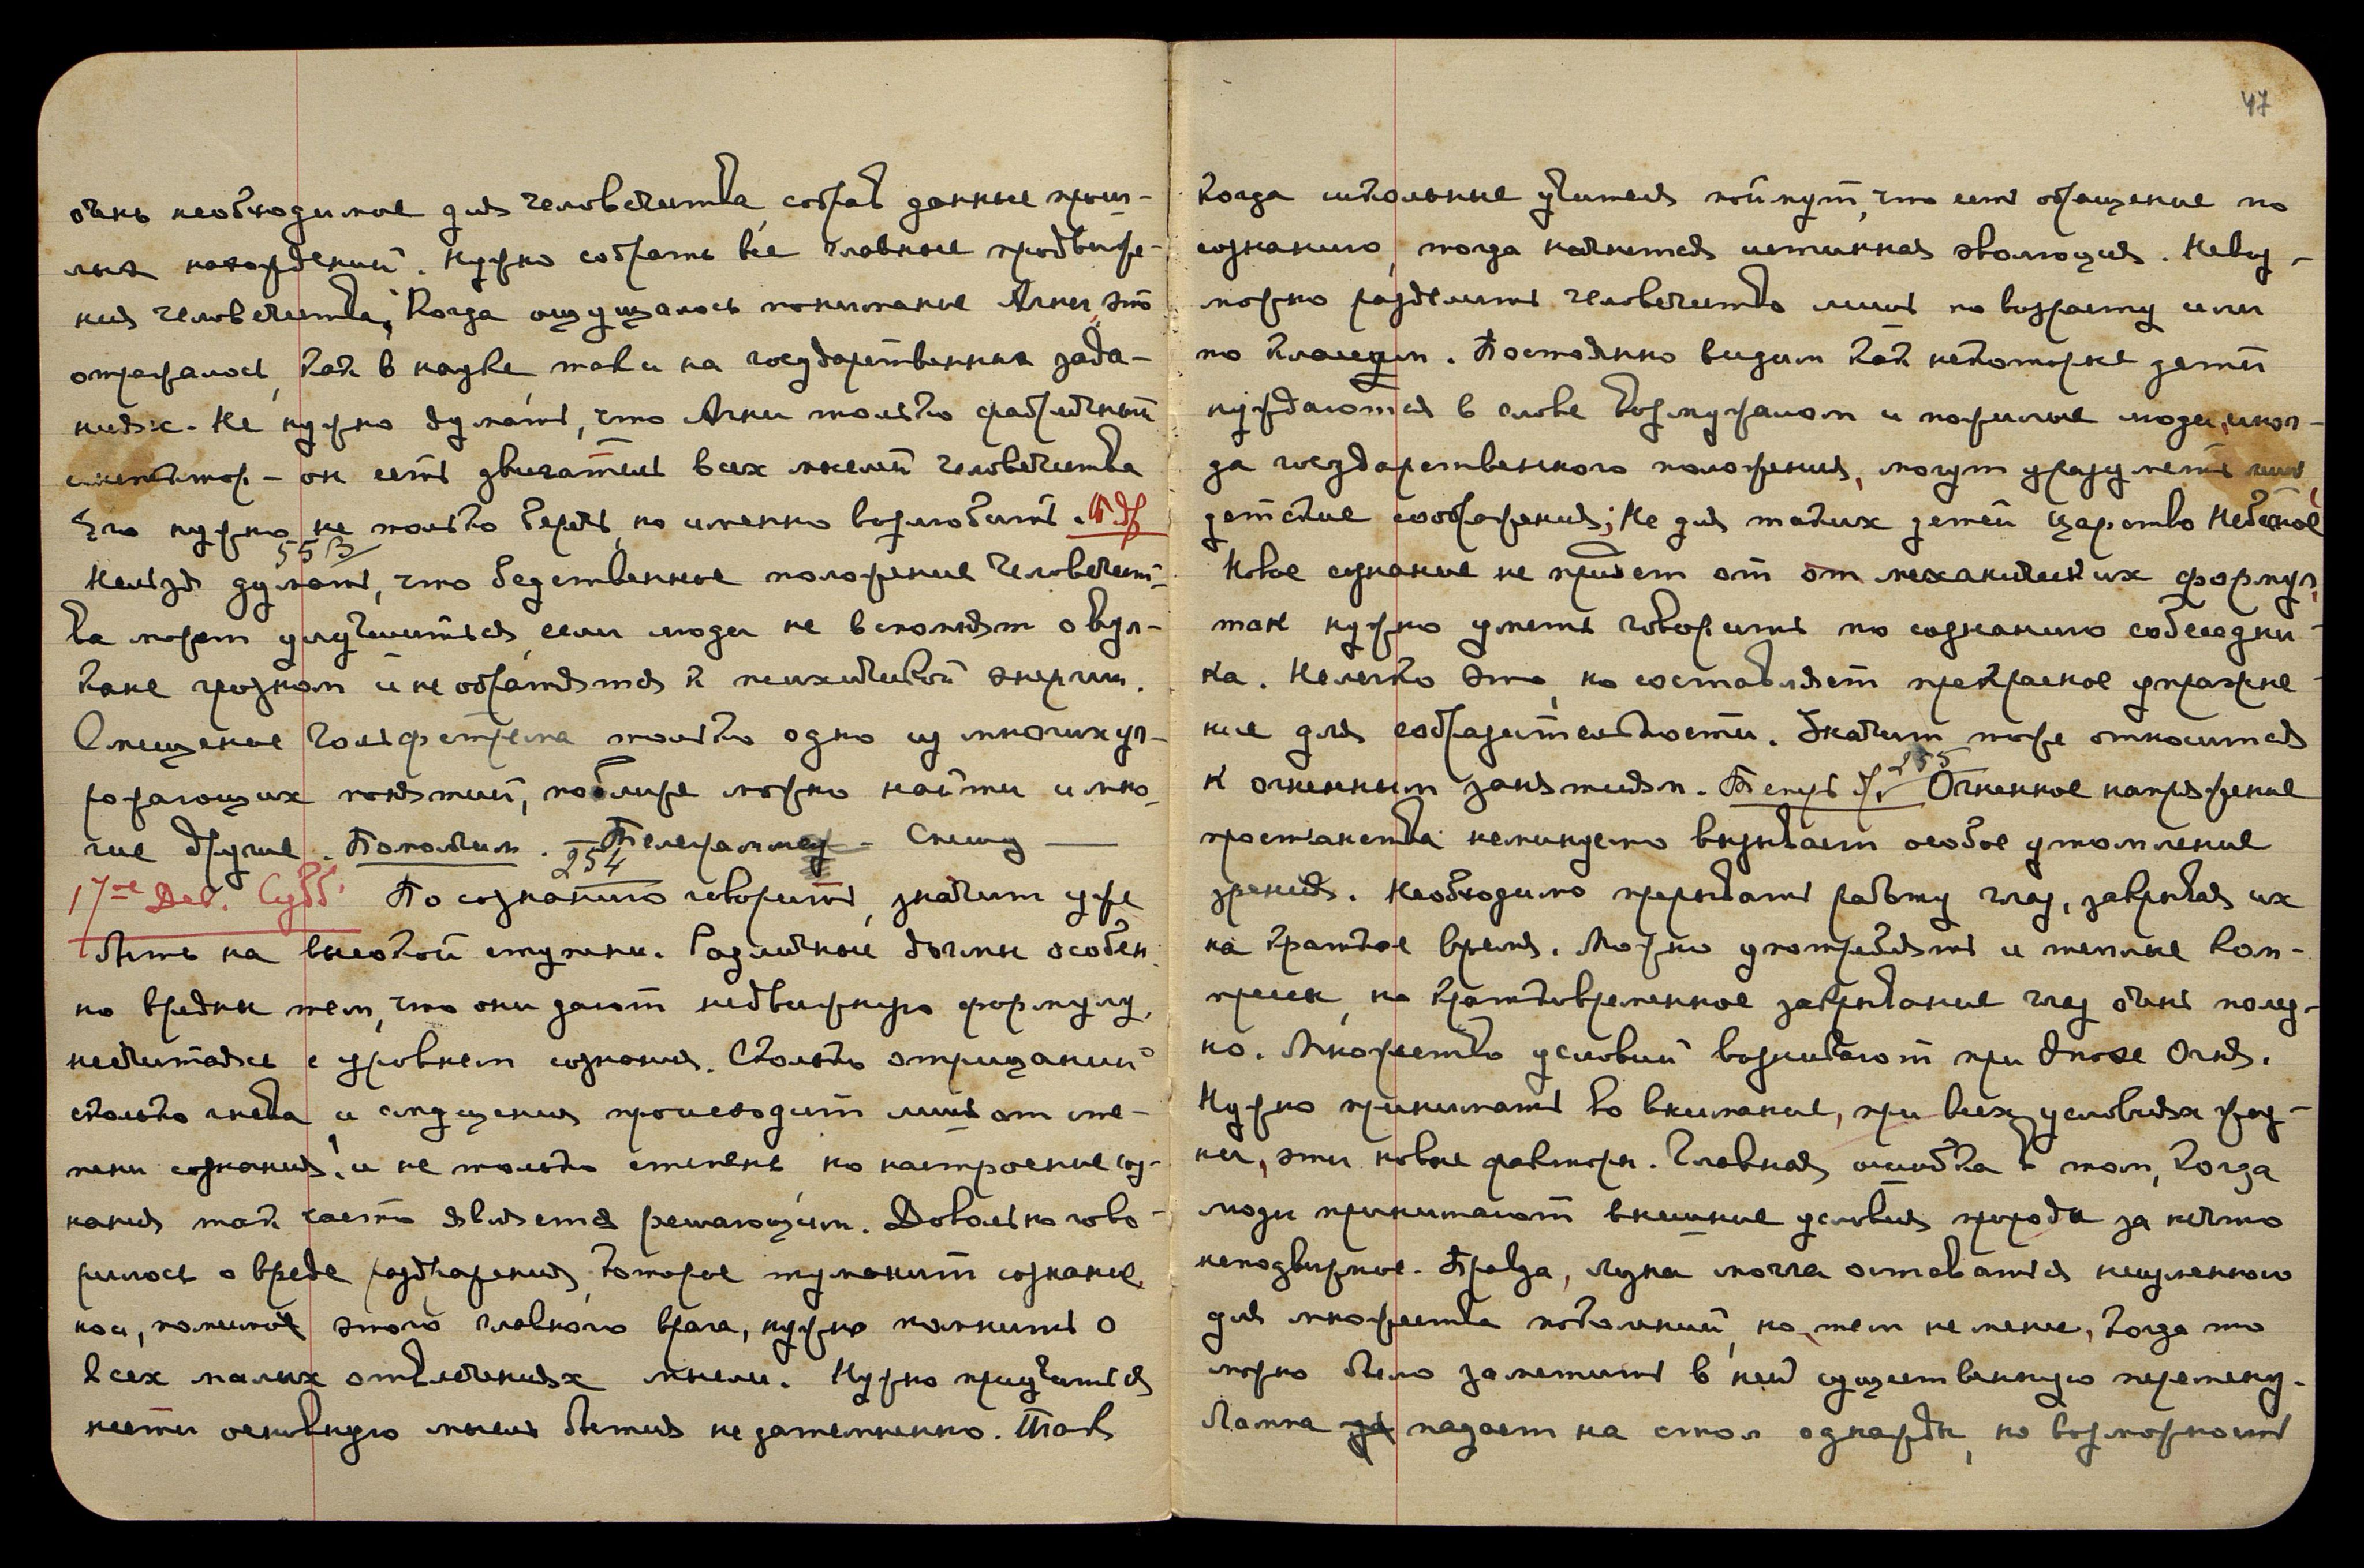 очень необходимое для человечества, собрав данные прош-
лых нахождений. Нужно собрать все главные продвиже-
ния человечества, когда ощущалось понимание Агни, это
отражалось, как в науке так и на государственных зада-
ниях. Не нужно думать, что Агни только фабричный
он есть двигатель всех мыслей человечества
Его нужно не только беречь, но именно возлюбить.
553
Нельзя думать, что бедственное положение человечест-
ва может улучшиться, если люди не вспомнят о вул-
кане грозном и не обратятся к психической энергии.
Смещение Гольфстрема только одно из многих уг-
рожающих понятий, поближе можно найти и мно-
гие другие. Помолчим. – Телеграмму – Спешу —
254
17-е Дек. Субб. По сознанию говорить, значит уже
быть на высокой ступени. Различные догмы особен-
но вредны тем, что они дают недвижную формулу,
не считаясь с уровнем сознания. Столько отрицаний
столько гнева и смущения происходит лишь от сте-
пени сознания! и не только степень но настроение соз-
нания так часто является решающим. Довольно гово-
рилось о вреде раздражения, которое туманит сознание,
но и, помимо этого главного врага, нужно помнить о
всех малых отвлечениях мысли. Нужно приучиться
нести основную мысль бытия не затемненно. Так
47
когда школьные учителя поймут, что есть обращение по
сознанию, тогда начнется истинная эволюция. Невоз-
можно разделить человечество лишь по возрасту или
по классам. Постоянно видим как некоторые дети
нуждаются в слове возмужалом и пожилые люди, иног-
да государственного положения, могут уразуметь лишь
детские соображения; Не для таких детей царство Небесное
Новое сознание не придет от от механических формул,
так нужно уметь говорить по сознанию собеседни-
ка. Нелегко это, но составляет прекрасное упражне-
ние для сообразительности. Значит тоже относится
к огненным занятиям. 255 Огненное напряжение
пространства неминуемо вызывает особое утомление
зрения. Необходимо прерывать работу глаз, закрывая их
на краткое время. Можно употреблять и теплые ком-
пресс, но кратковременное закрывание глаз очень полез-
но. Множество условий возникают при эпохе Огня.
Нужно принимать во внимание, при всех условиях жиз-
ни, эти новые факторы. Главная ошибка в том, когда
люди принимают внешние условия природы за нечто
неподвижное. Правда, луна могла оставаться неизменною
для множества поколений, но тем не менее, когда то
можно было заметить в ней существенную перемену.
Лампа падает на стол однажды, но возможность